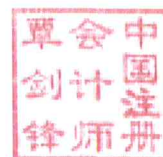 中国注册
会计师
覃剑锋